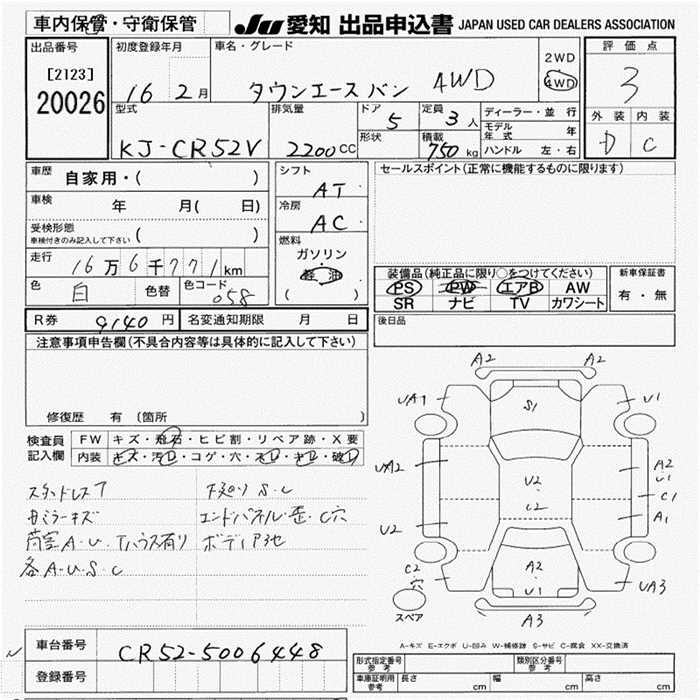 車内保管・守衛保管
JU 愛知 出品申込書 JAPAN USED CAR DEALERS ASSOCIATION
出品番号
[2123]
20026
初度登録年月
16 2月
車名・グレード
タウンエース バン 4WD
2WD
4WD
評価点
3
外装 内装
D C
型式
KJ-CR52V
排気量
2200CC
ドア
5
定員
3人
形状
積載
750kg
ディーラー・並行
モデル年式 年
ハンドル 左・右
車歴 自家用・( )
車検 年 月( 日)
受検形態
車検付きのみ記入して下さい ( )
走行 16万6千771km
色 白 色替 色コード 058
シフト
AT
冷房
AC
燃料
ガソリン
軽油
( )
セールスポイント(正常に機能するものに限ります)
装備品(純正品に限り○をつけてください)
PS PW エアB AW
SR ナビ TV カワシート
新車保証書
有・無
後日品
R券 9140円 名変通知期限 月 日
注意事項申告欄(不具合内容等は具体的に記入して下さい)
修復歴 有 (箇所 )
検査員記入欄
FW キズ・飛石・ヒビ割・リペア跡・X要
内装 キズ・汚レ・コゲ・穴・スレ・キレ・破レ
スタッドレス7
下廻りS.C
Bミラーキズ
エンドパネル歪・C穴
荷室A.U.Tハウス有り
各A.U.S.C
A2 A2
UA1 S1 U1
UA2 U2 C2 A2 U1
C1
A1
U2
C2 穴 A2 U1 UA3
A3
スペア
A-キズ E-エクボ U-凹み W-補修跡 S-サビ C-腐食 XX-交換済
車台番号 CR52-5006448
登録番号
型式指定番号 参考 類別区分番号 参考
車庫証明用参考 長さ cm 幅 cm 高さ cm